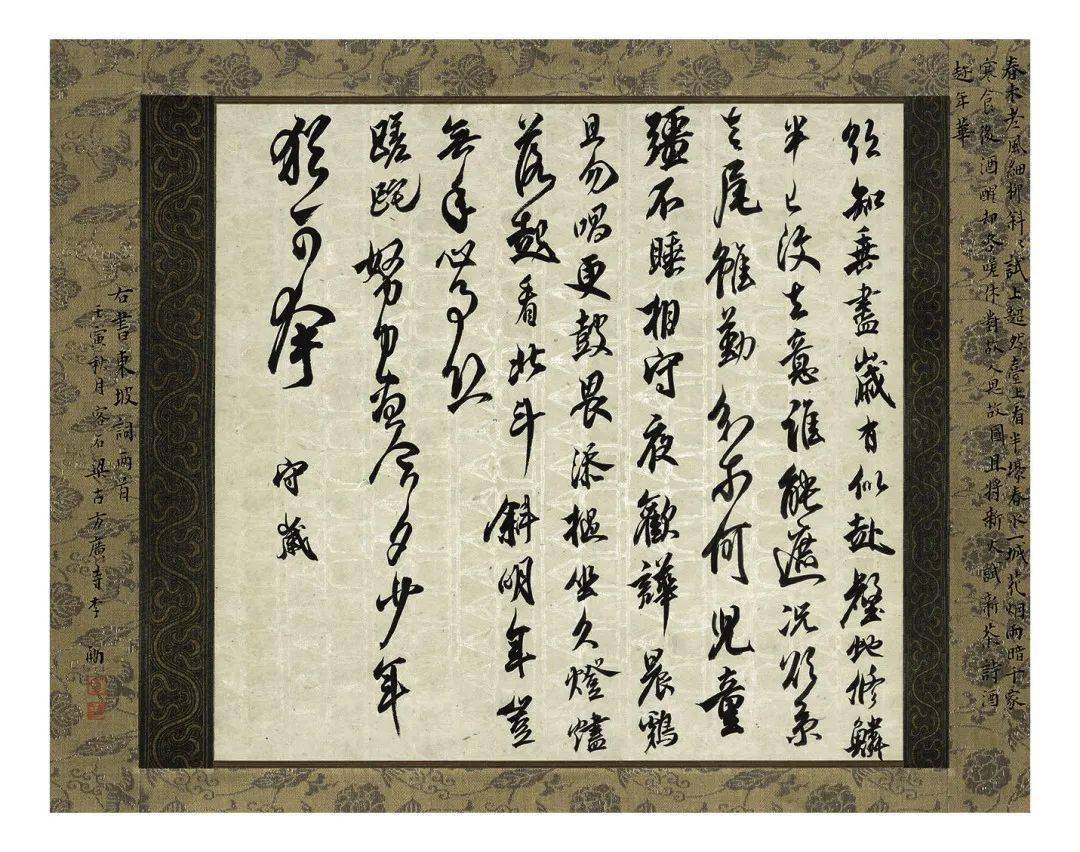 春未老風細柳斜〻試上超然臺上看半壕春水一城花烟雨暗千家
寒食後酒醒却咨嗟休對故人思故國且將新火試新茶詩酒
趁年華
欲知垂盡歲有似赴壑蛇修鱗
半已沒去意誰能遮況欲系
其尾雖勤知奈何兒童
彊不睡相守夜歡譁晨鷄
且勿唱更鼓畏添檛坐久燈燼
落起看北斗斜明年豈
無年心事恐
蹉跎努力盡今夕少年
猶可夸
守歲
右書東坡詞兩首
壬寅秋月客石梁古方廣寺李